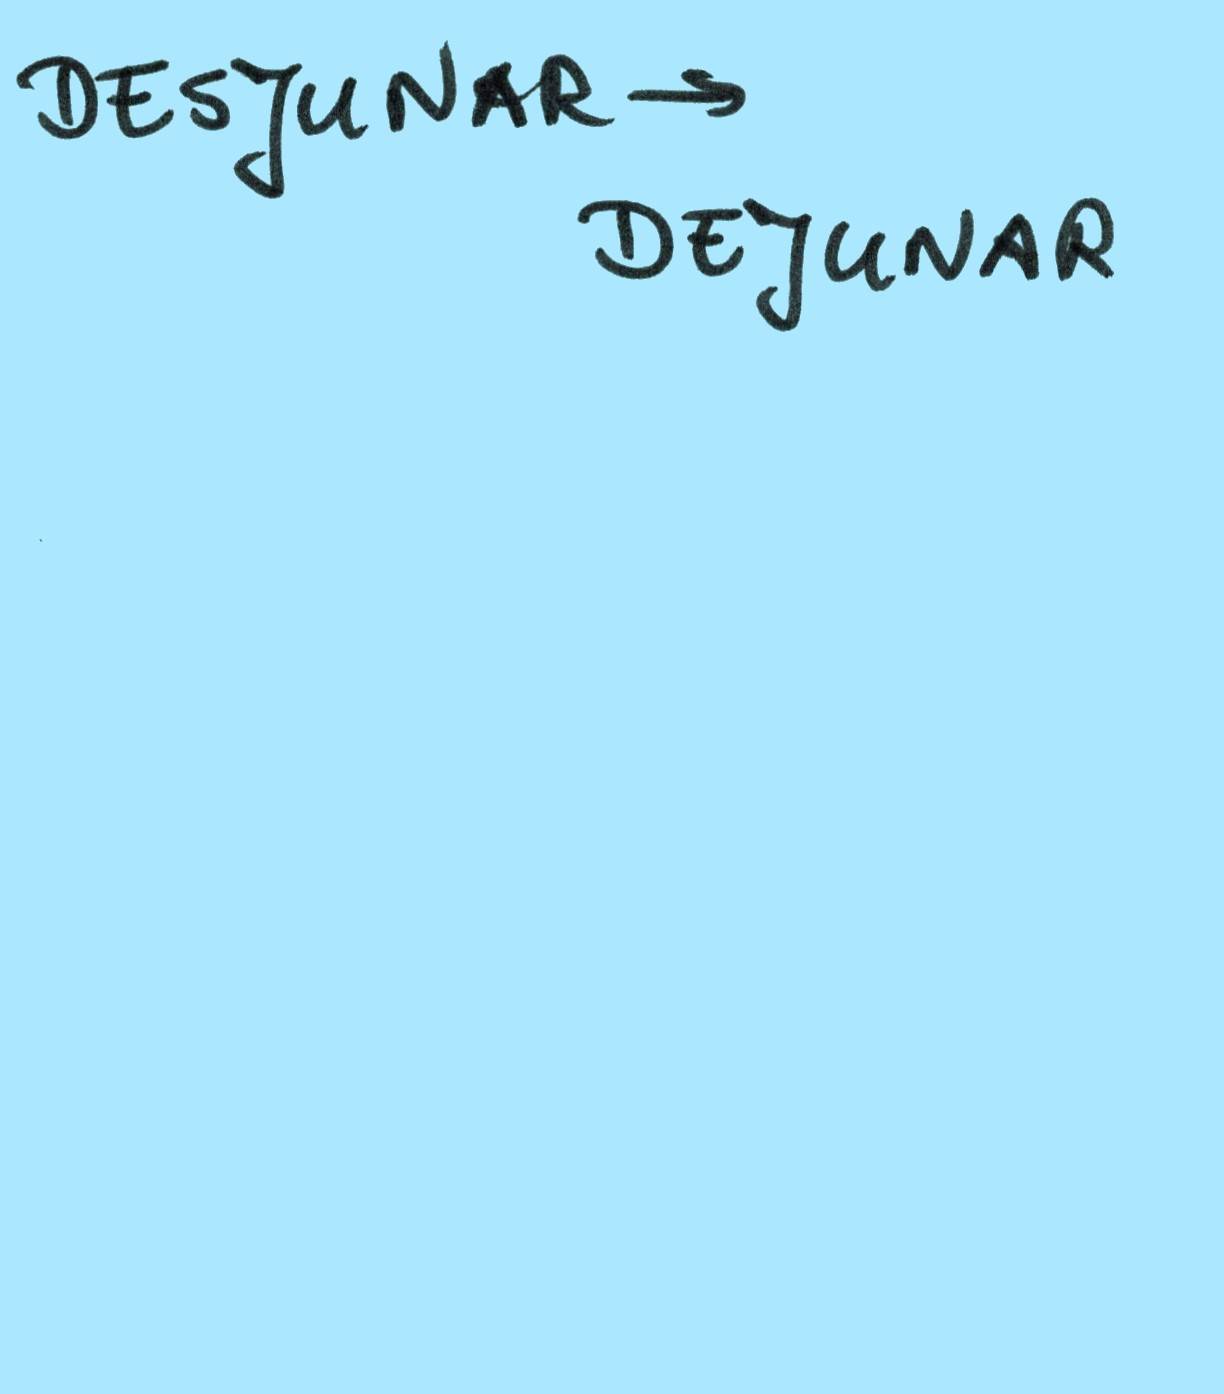 DESJUNAR →
DEJUNAR